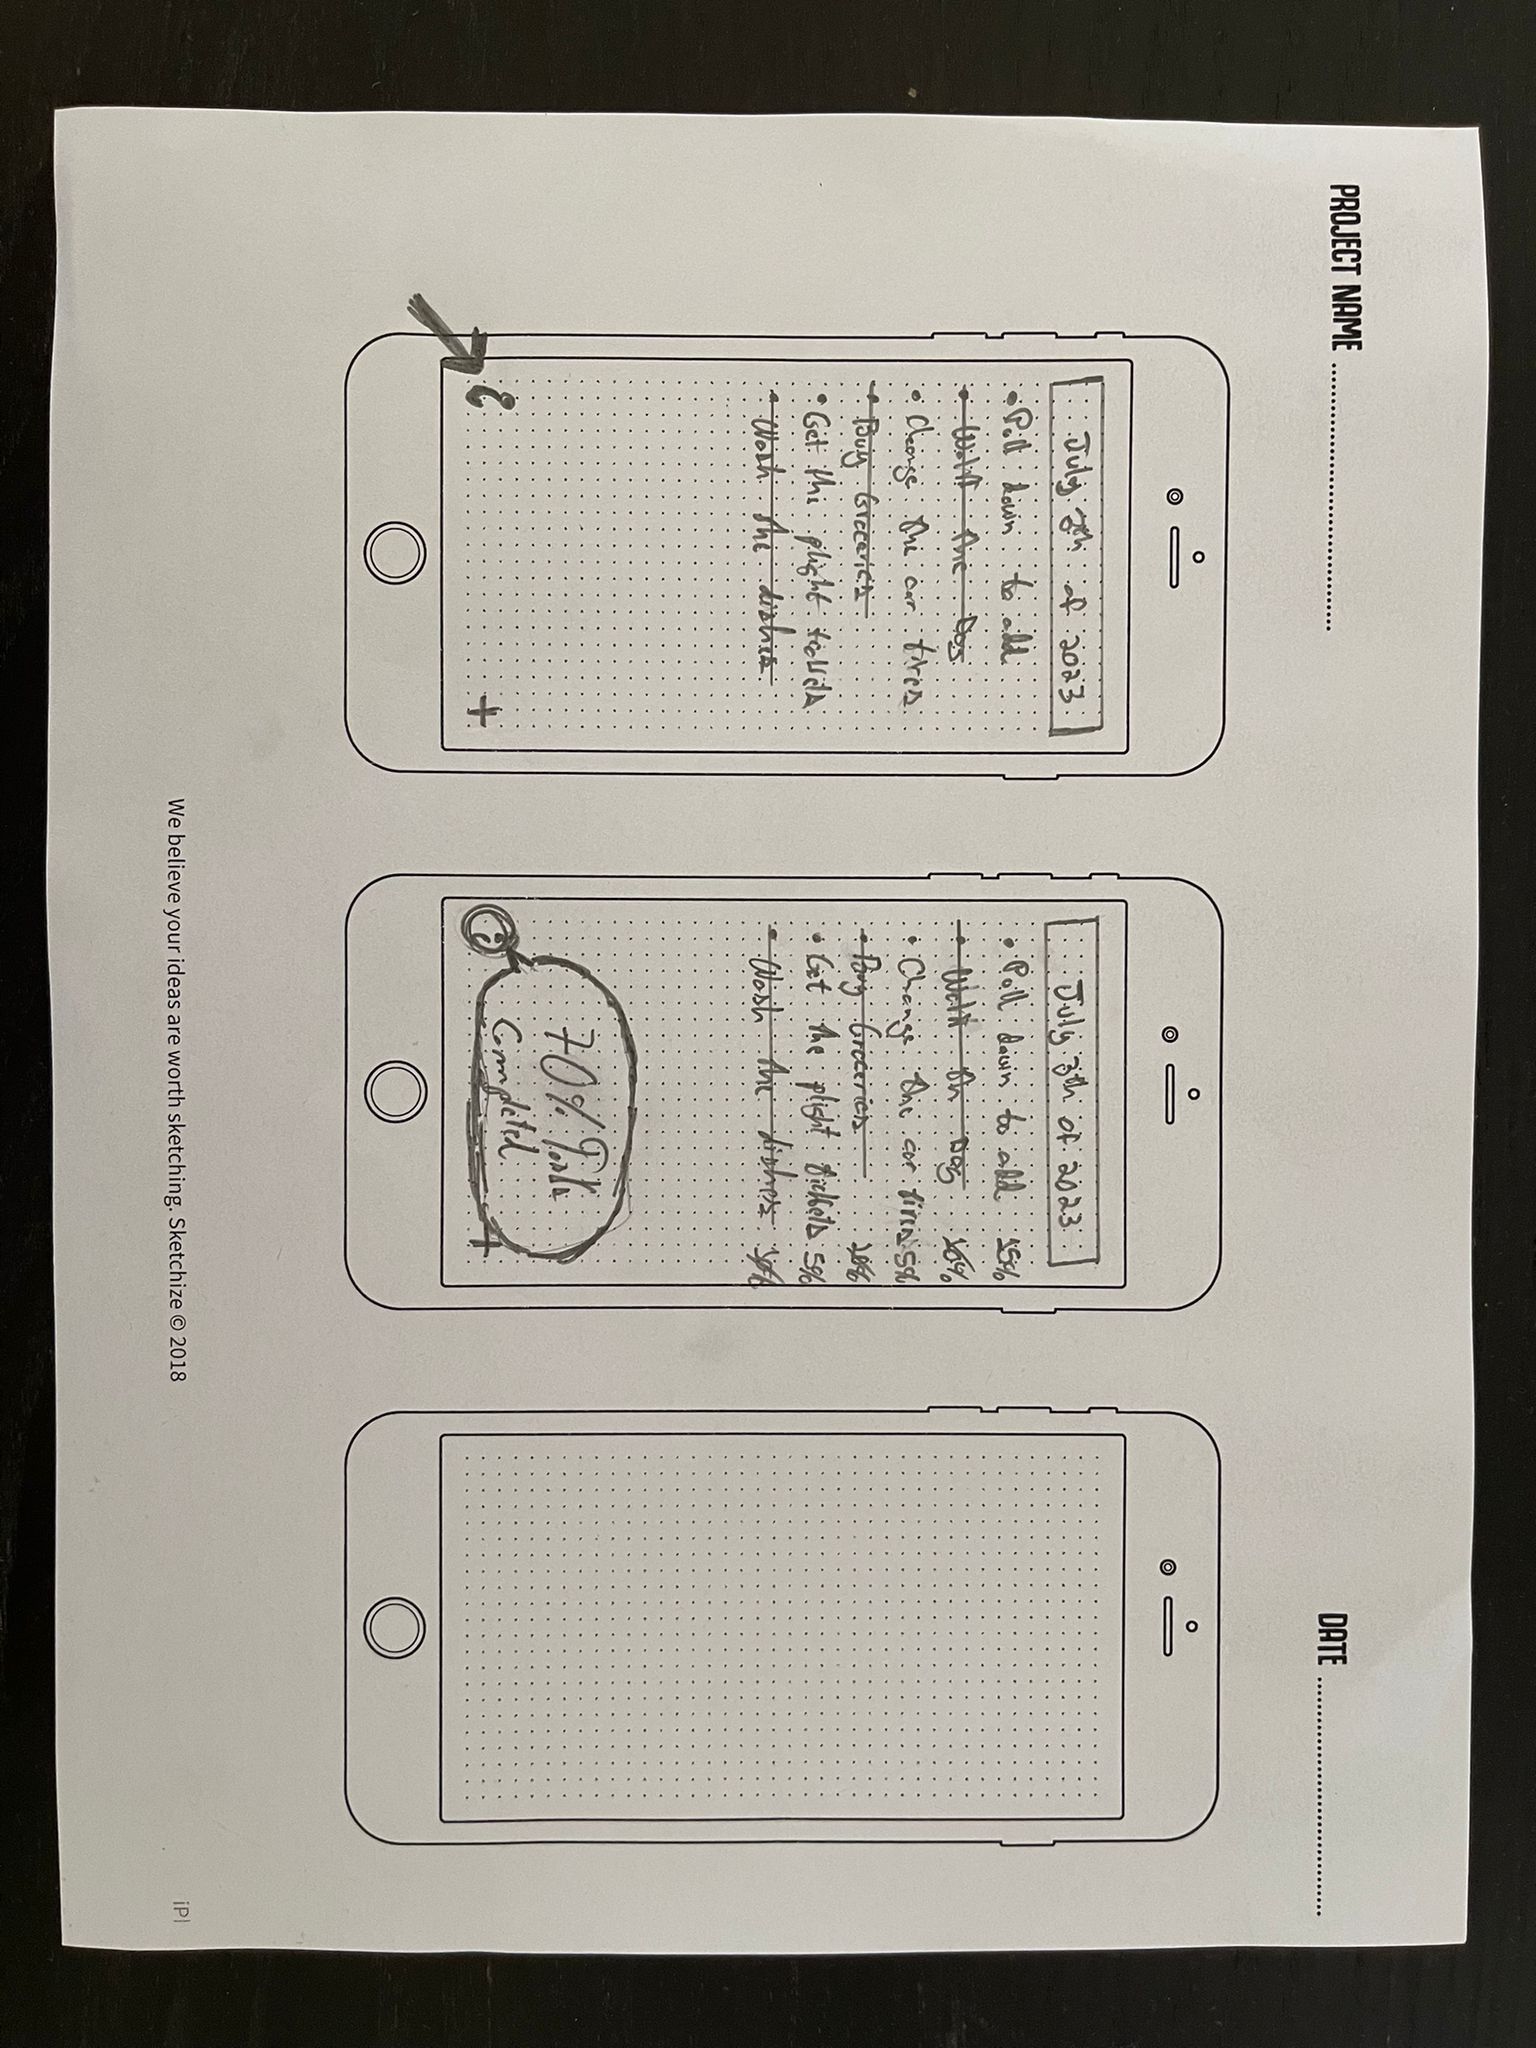 PROJECT NAME
DATE
July 8th of 2023
• Pull down to add
• Walk the Dog
• Change the car tires
• Buy Groceries
• Get the plight tickets
• Wash the dishes
+
July 8th of 2023
• Pull down to add 15%
• Walk the Dog
• Change the car tires 5%
• Buy Groceries 20%
• Get the plight tickets 5%
• Wash the dishes
70%
Completed
+
We believe your ideas are worth sketching. Sketchize © 2018
iPl